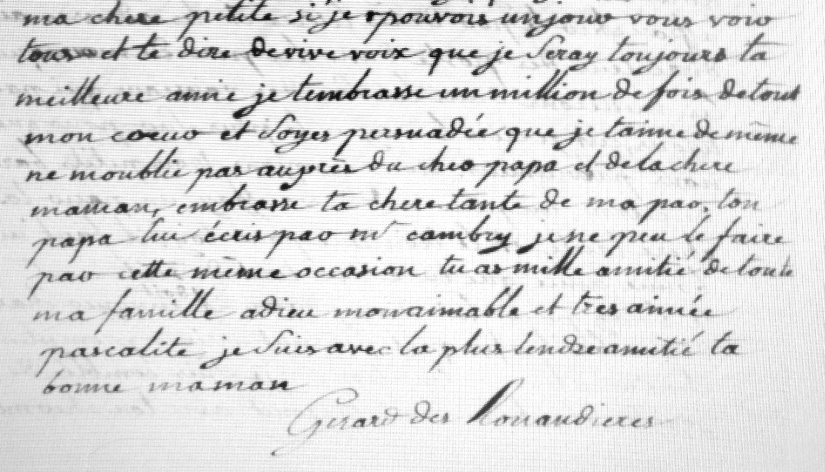 ma chere petite si je pouvois un jour vous voir
tous et te dire de vive voix que je seray toujours ta
meilleure amie je tembrasse un million de fois de tout
mon coeur et soyes persuadée que je taime de même
ne moublie pas auprès du cher papa et de la chere
maman, embrasse ta chere tante de ma par. ton
papa lui écris par mr cambry je ne peu le faire
par cette même occasion tu as mille amitié de toute
ma famille adieu mon aimable et tres aimée
pascalite je suis avec la plus tendre amitié ta
bonne maman
Gerard des Rouaudieres